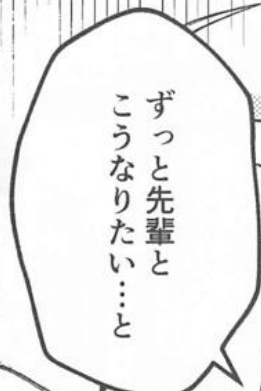 ずっと先輩と
こうなりたい…と